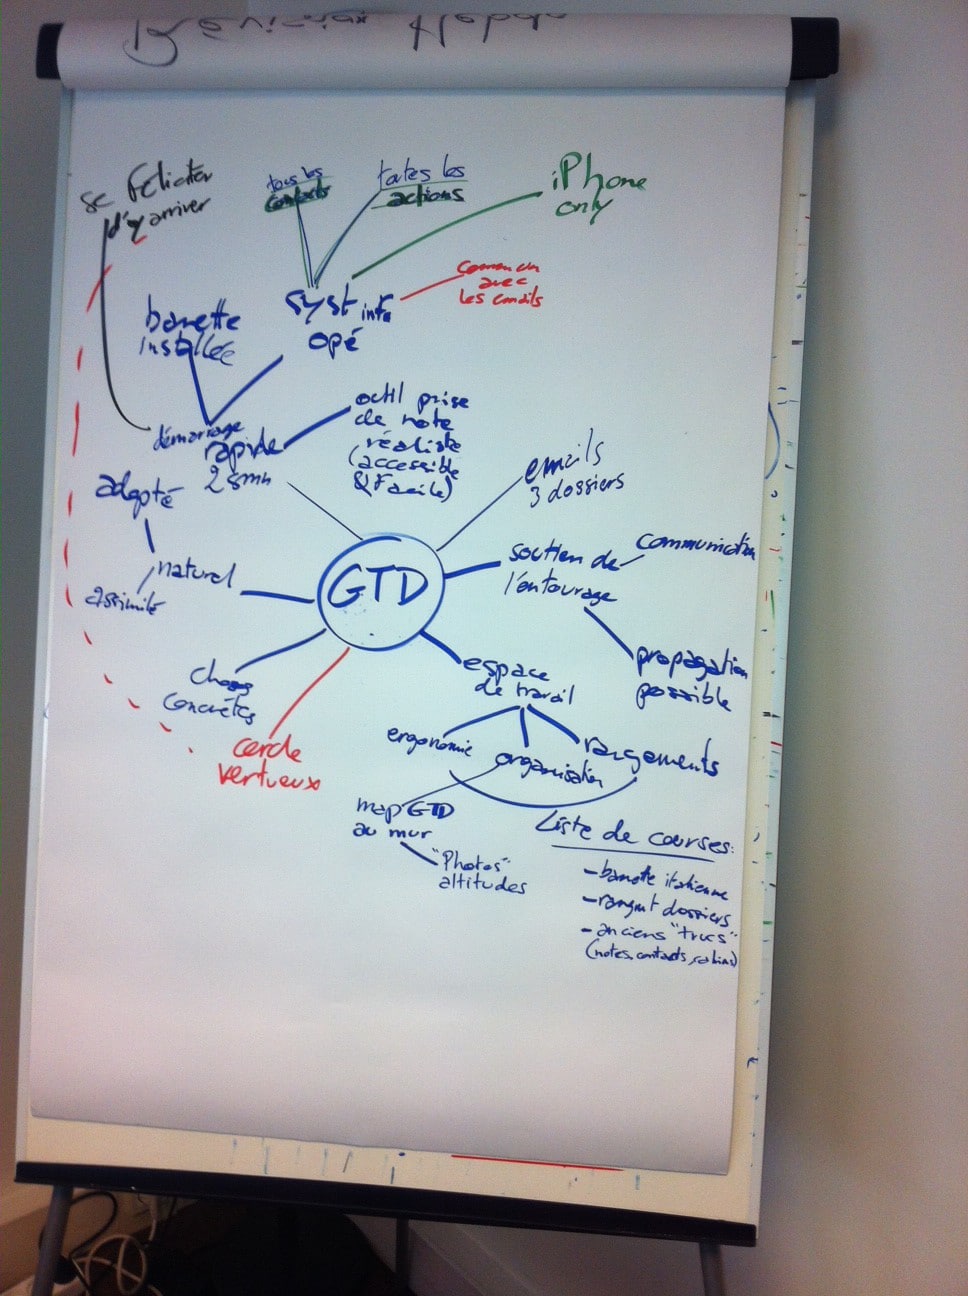 se féliciter
d'y arriver
tous les
contacts
toutes les
actions
iPhone
only
syst infra
opé
avec
les emails
banette
installée
démarrage
rapide
outil prise
de note
réaliste
(accessible
& facile)
emails
3 dossiers
adapté
naturel
assimilé
GTD
soutien de
l'entourage
communication
propagation
possible
choses
concrètes
cercle
vertueux
espace
de travail
ergonomie
organisation
rangements
map GTD
au mur
"Photos"
altitudes
Liste de courses:
- banette italienne
- rangmt dossiers
- anciens "trucs"
(notes, contacts,